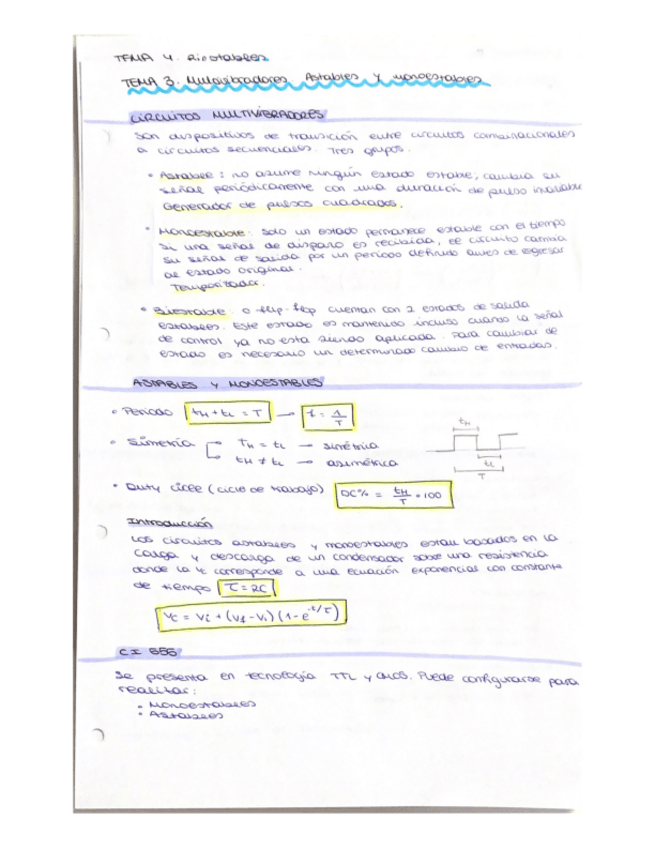 TEMA 4. Biestables
TEMA 3. Multivibradores Astables y monoestables
CIRCUITOS MULTIVIBRADORES
Son dispositivos de transición entre circuitos combinacionales
a circuitos secuenciales. Tres grupos.
• Astable: no asume ningún estado estable, cambia su
señal periódicamente con una duración de pulso invariable
Generador de pulsos cuadrados.
• Monoestable: solo un estado permanece estable con el tiempo
Si una señal de disparo es recibida, el circuito cambia
su señal de salida por un período definido antes de egresar
al estado original.
Temporizador.
• Biestable: o flip-flop cuentan con 2 estados de salida
estables. Este estado es mantenido incluso cuando la señal
de control ya no esta siendo aplicada. Para cambiar de
estado es necesario un determinado cambio de entradas.
ASTABLES Y MONOESTABLES
• Periodo tH + tL = T → f = 1/T
• Simetría tH = tL → simétrica
tH ≠ tL → asimétrica
tH
tL
T
• Duty Cicle (ciclo de trabajo) DC% = tH/T · 100
Introducción
Los circuitos astables y monoestables estan basados en la
carga y descarga de un condensador sobre una resistencia
donde la Vc corresponde a una ecuación exponencial con constante
de tiempo τ = RC
Vc = Vi + (Vf - Vi) (1 - e^-t/τ)
CI 555
Se presenta en tecnología TTL y CMOS. Puede configurarse para
realizar:
• Monoestables
• Astables